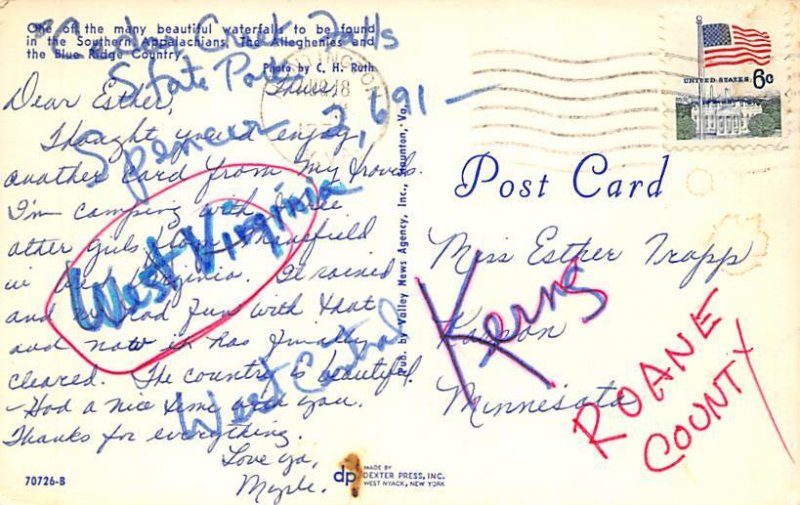 One of the many beautiful waterfalls to be found
in the Southern Appalachians, The Alleghenies and
the Blue Ridge Country.
Photo by C. H. Ruth
Creek Falls
State Park
Spencer 2,691 —
West Virginia
West Central
Dear Esther,
Thought you'd enjoy
another card from my travels.
I'm camping with three
other girls from
in West Virginia. It rained
and we had fun with that
and now it has finally
cleared. The country is beautiful.
Had a nice time with you.
Thanks for everything.
Love ya,
70726-B
Pub. by Valley News Agency, Inc., Staunton, Va.
dp
MADE BY
DEXTER PRESS, INC.
WEST NYACK, NEW YORK
UNITED STATES 6c
Post Card
Miss Esther Trapp
Kasson
Minnesota
Kerns
ROANE
COUNTY